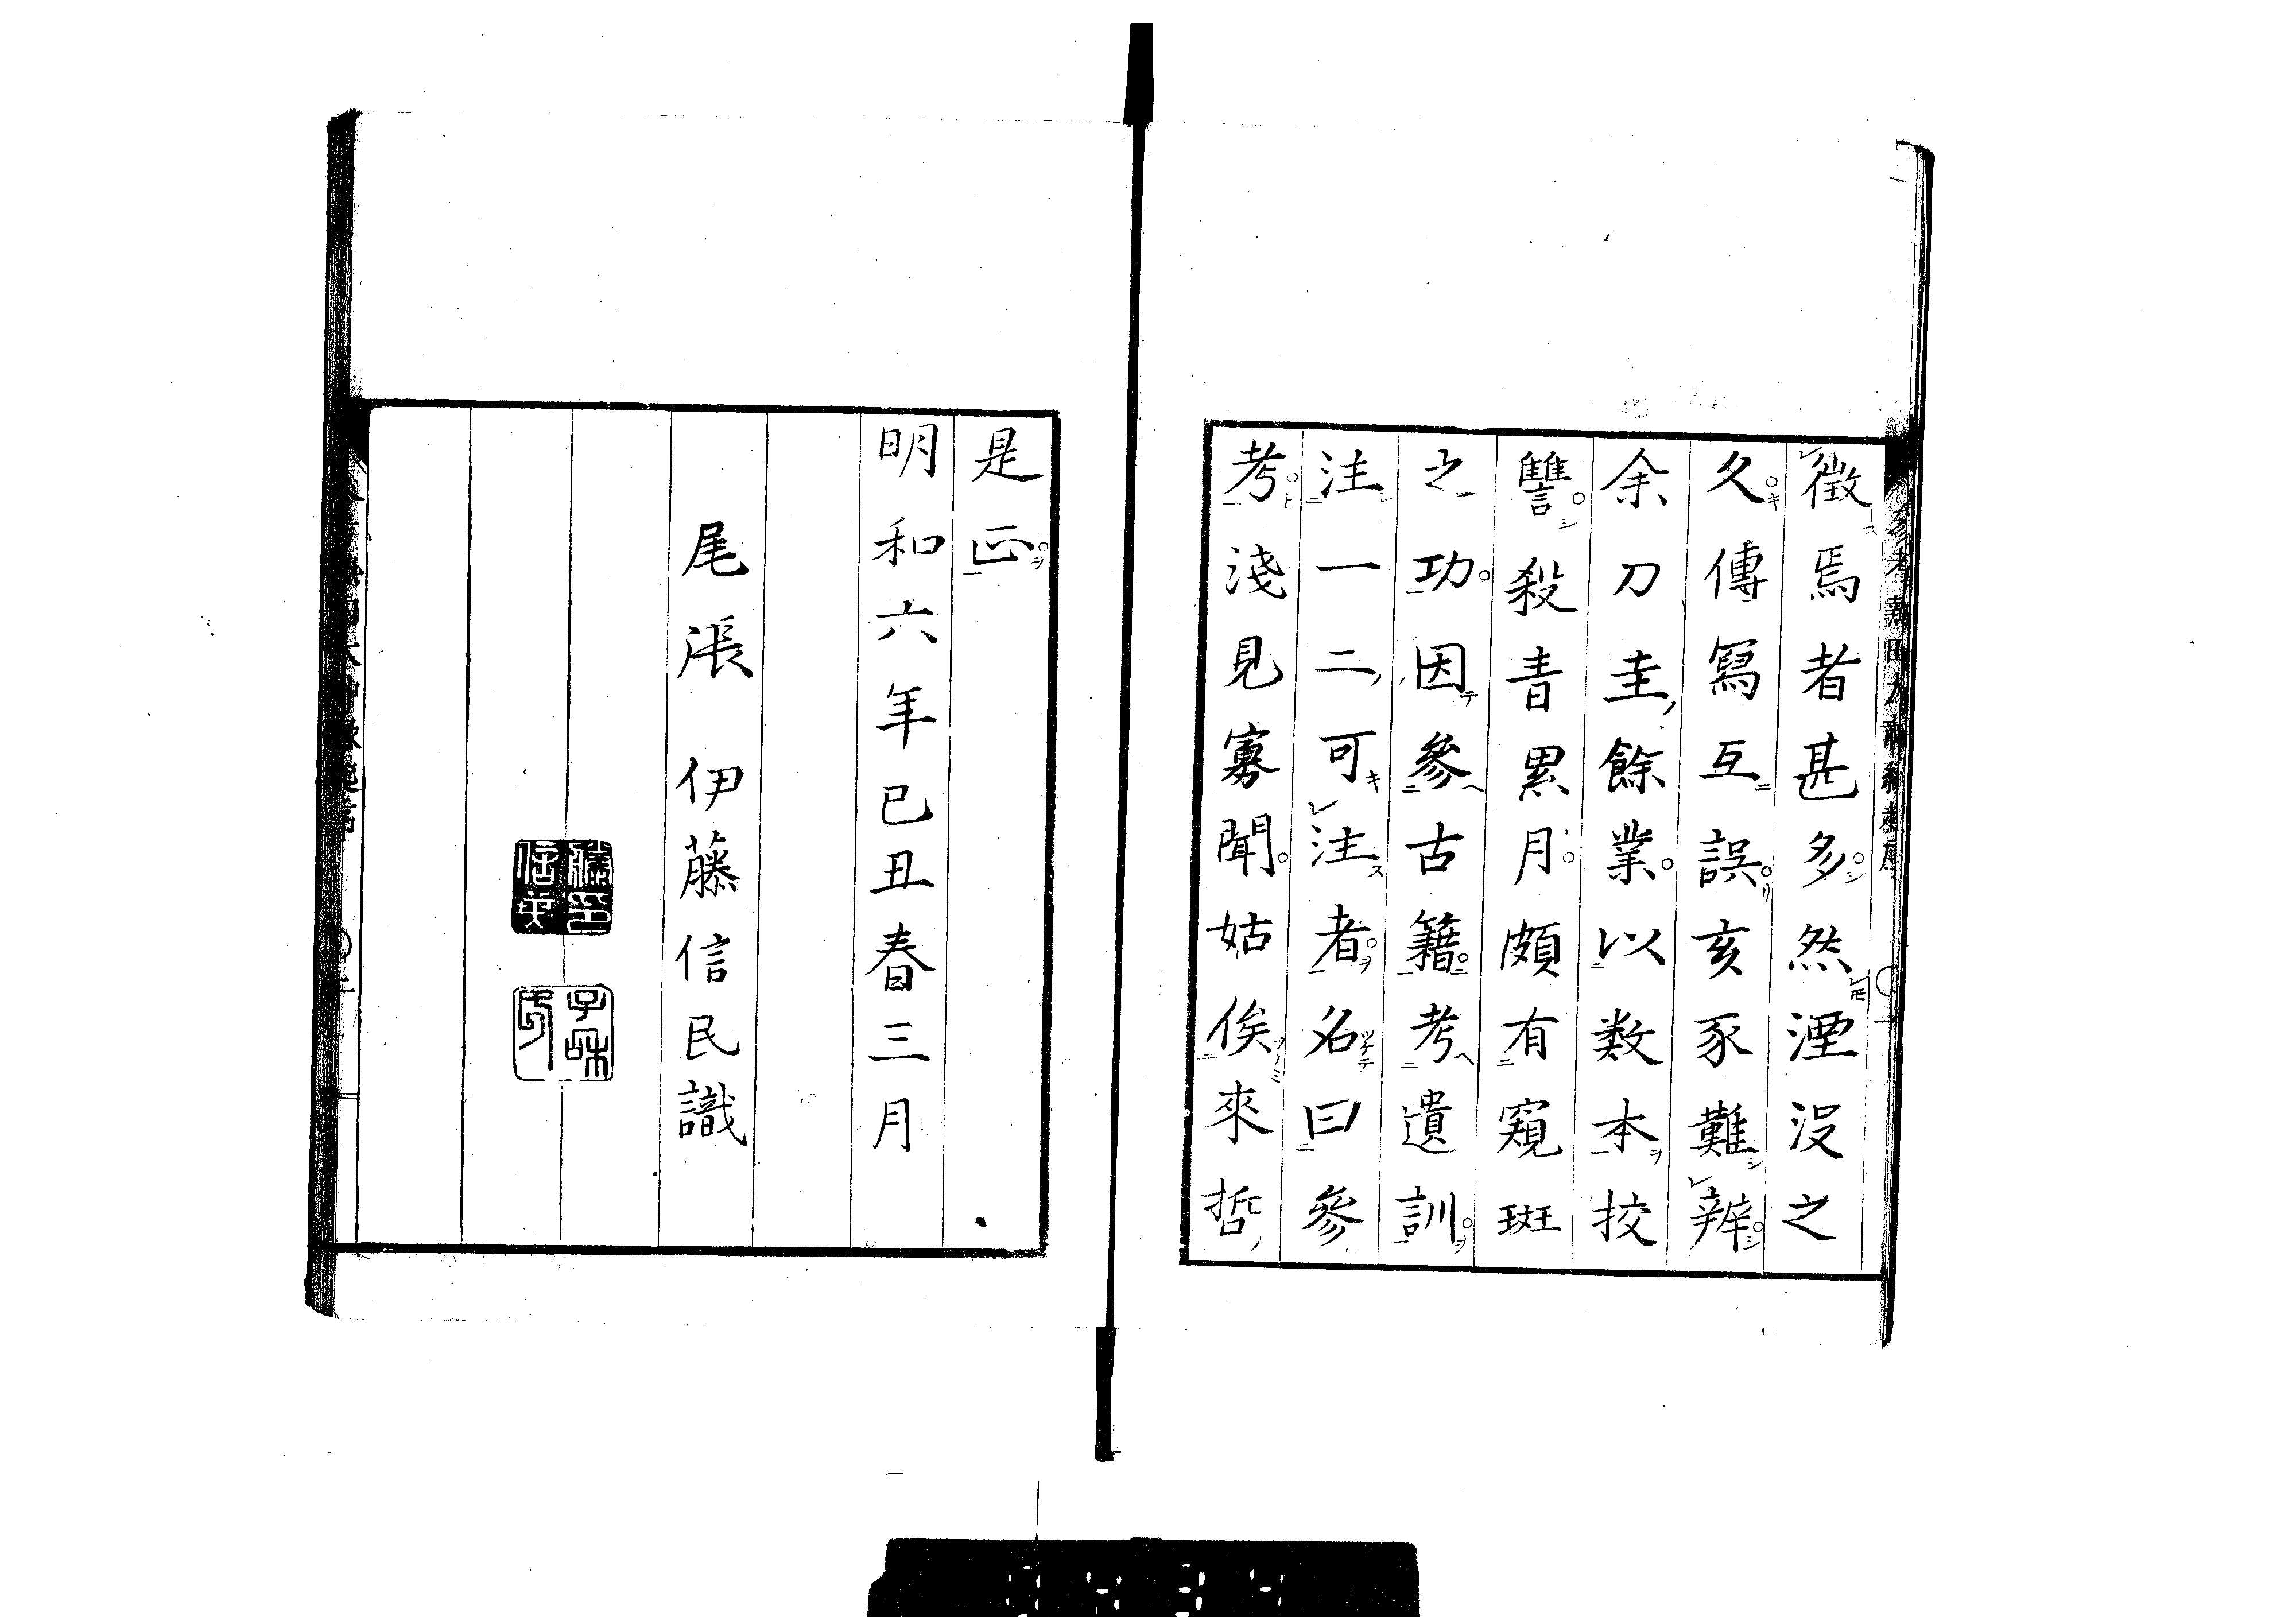 徴焉者甚多然湮没之
久傳寫互誤亥豕難辨
余刀圭餘業以数本挍
讐殺青累月頗有窺斑
之功因參古籍考遺訓
注一二可注者名曰參
考淺見寡聞姑俟來哲
是正
明和六年己丑春三月
尾張 伊藤信民識